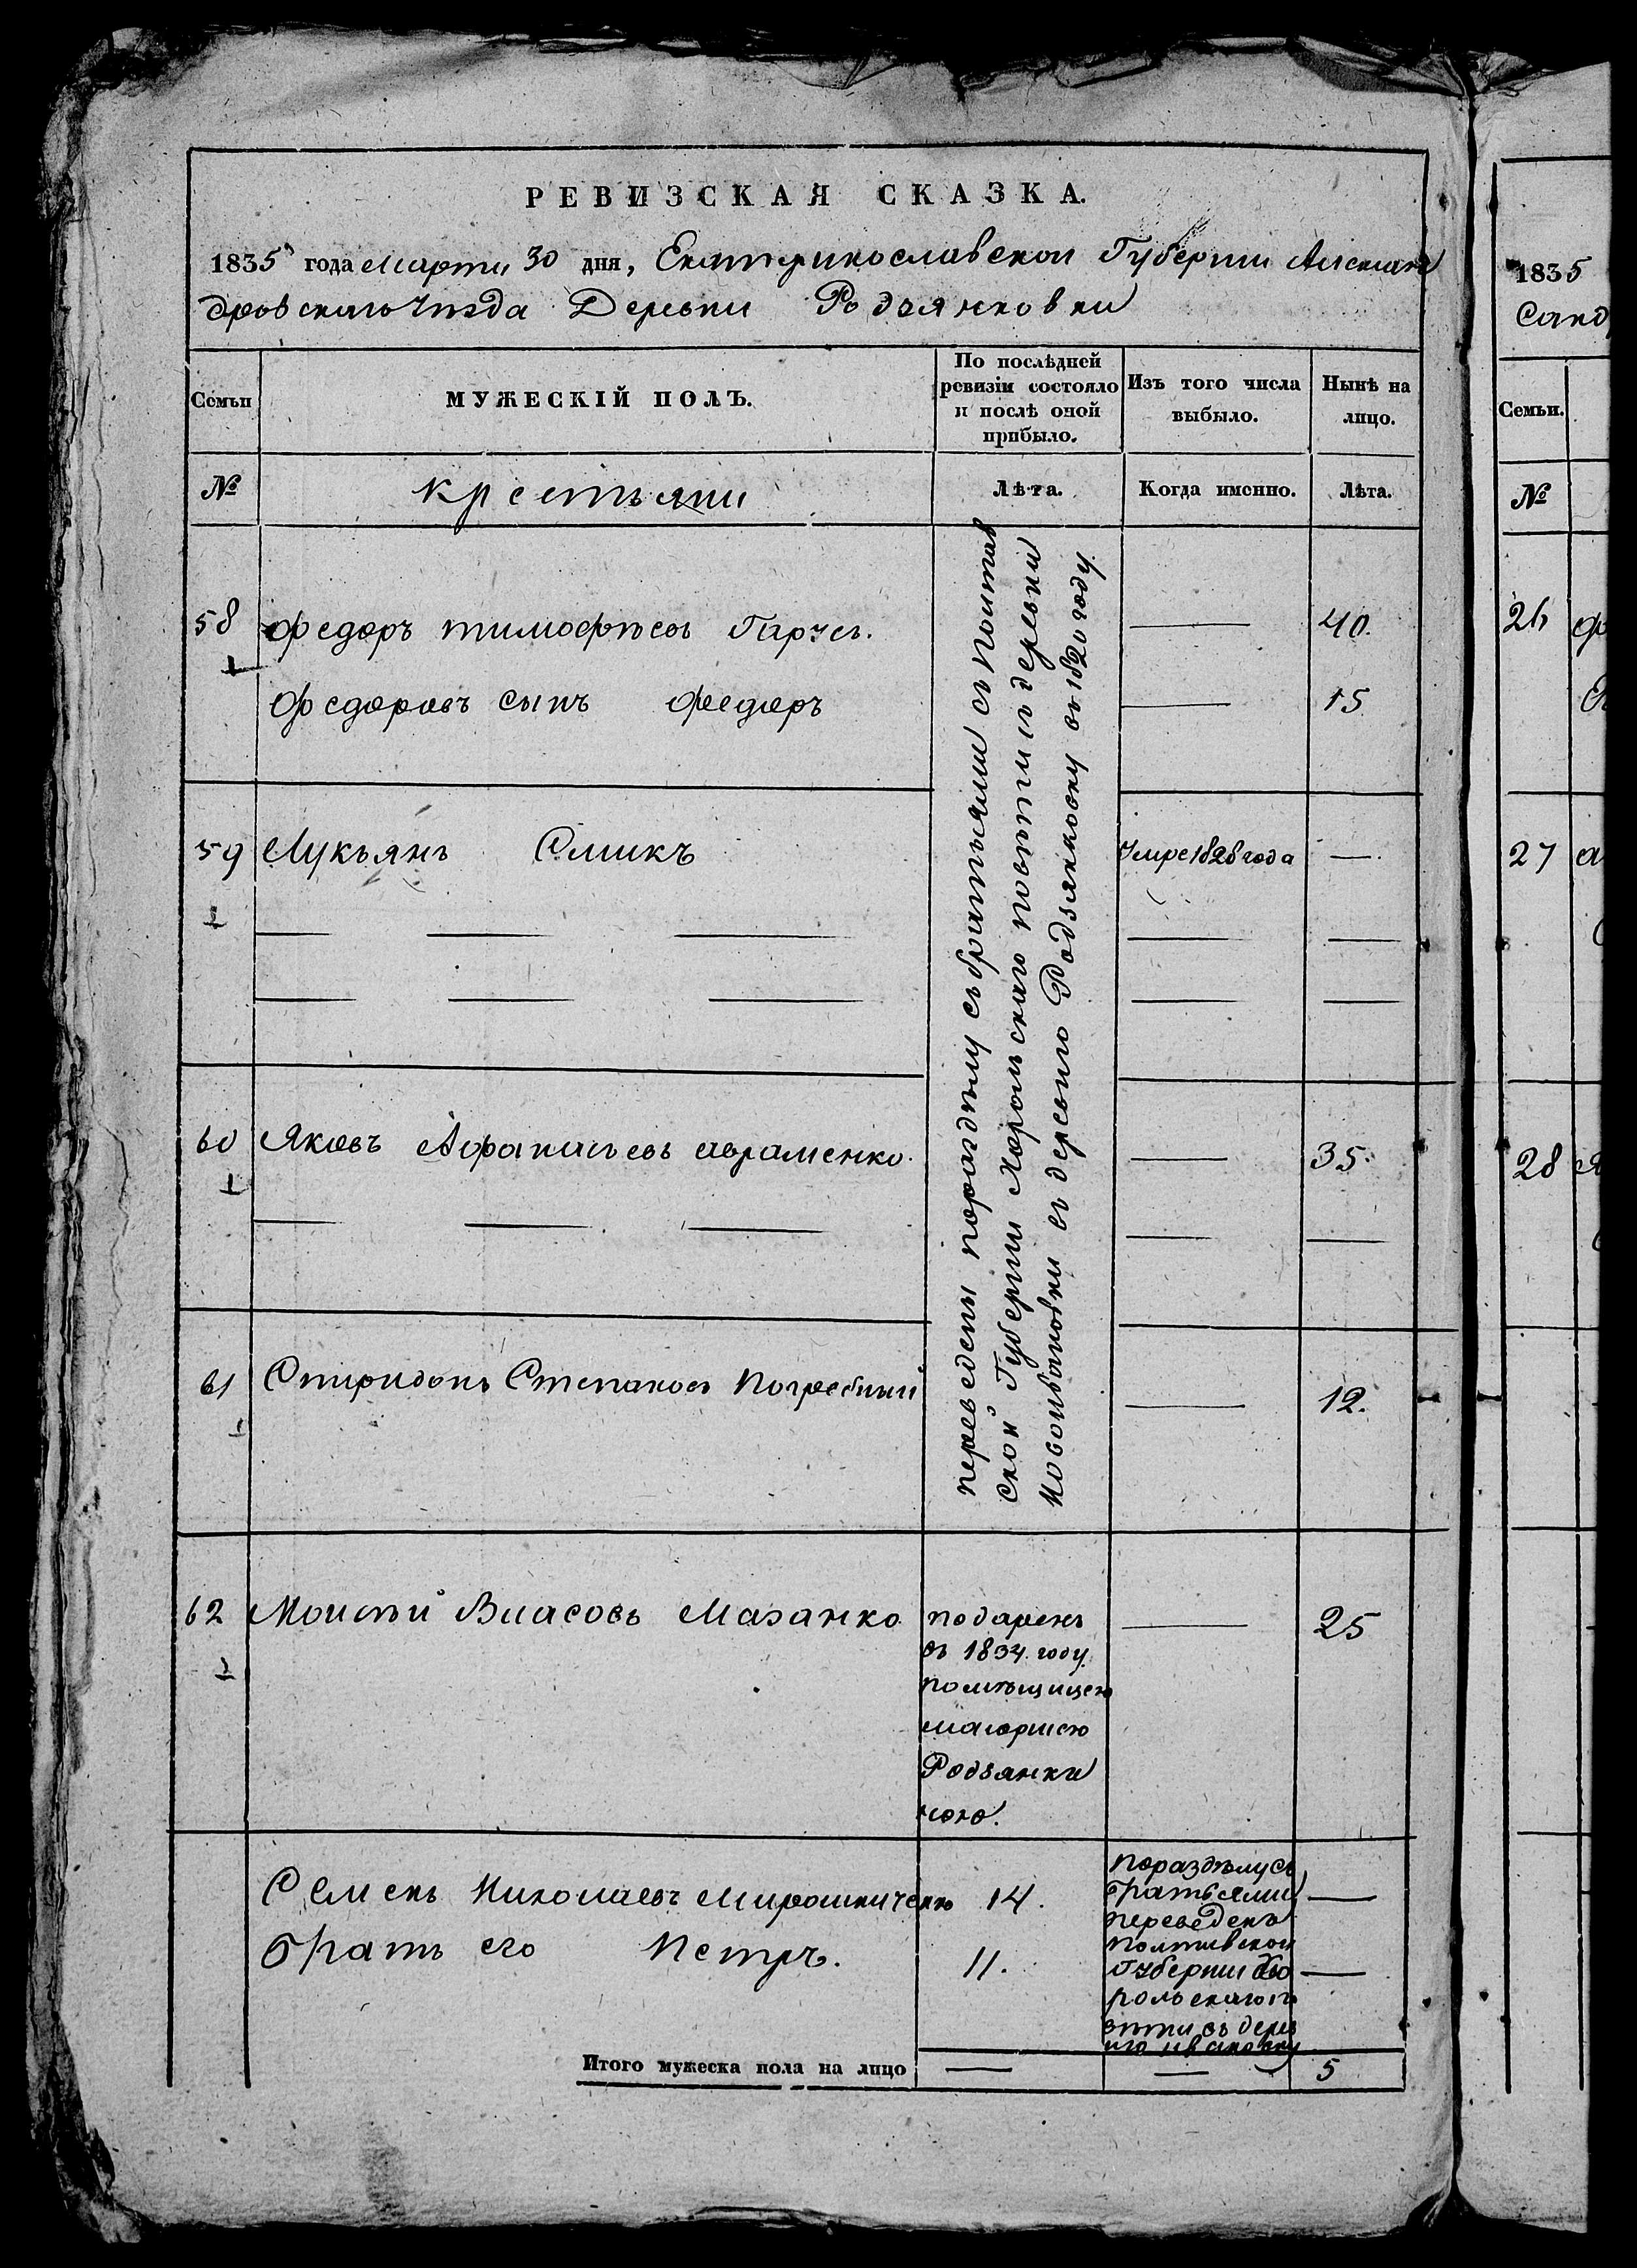 РЕВИЗСКАЯ СКАЗКА.
1835 года Марта 30 дня, Екатеринославской Губернии Алексан
дровскаго Уезда Деревни Родзянковки
Семьи
МУЖЕСКІЙ ПОЛЪ.
По послѣдней
ревизіи состояло
и послѣ оной
прибыло.
Изъ того числа
выбыло.
Нынѣ на
лицо.
№
Крестьяни
Лѣта.
Когда именно.
Лѣта.
переведены пораздѣлу съ братьями съ Полтав
ской Губернии Хорольскаго повѣта изъ деревни
Новоивановки въ деревню Родзянковку въ 1820 году
58 Федоръ тимофѣевъ — 40.
Федоровъ сынъ Федоръ — 15
59 Лукьянъ Смикъ Умре 1828 года —
60 Яковъ Афанасьевъ авраменко — 35.
61 Спиридонъ Степановъ Погребный — 12.
62 Моисѣй Власовъ Мазанко — 25
подаренъ
въ 1834 году
помѣщицею
маіоршею
Родзянки
ною.
Семенъ Николаевъ Мирошниченко 14. —
братъ его Петръ. 11. —
пораздѣлу съ
братьями
переведенъ
полтавской
Губернии Хо
рольскаго по
вѣта въ дерев
ню ивановку
Итого мужеска пола на лицо — — 5
1835
Санд
Семьи.
№
26
27
28